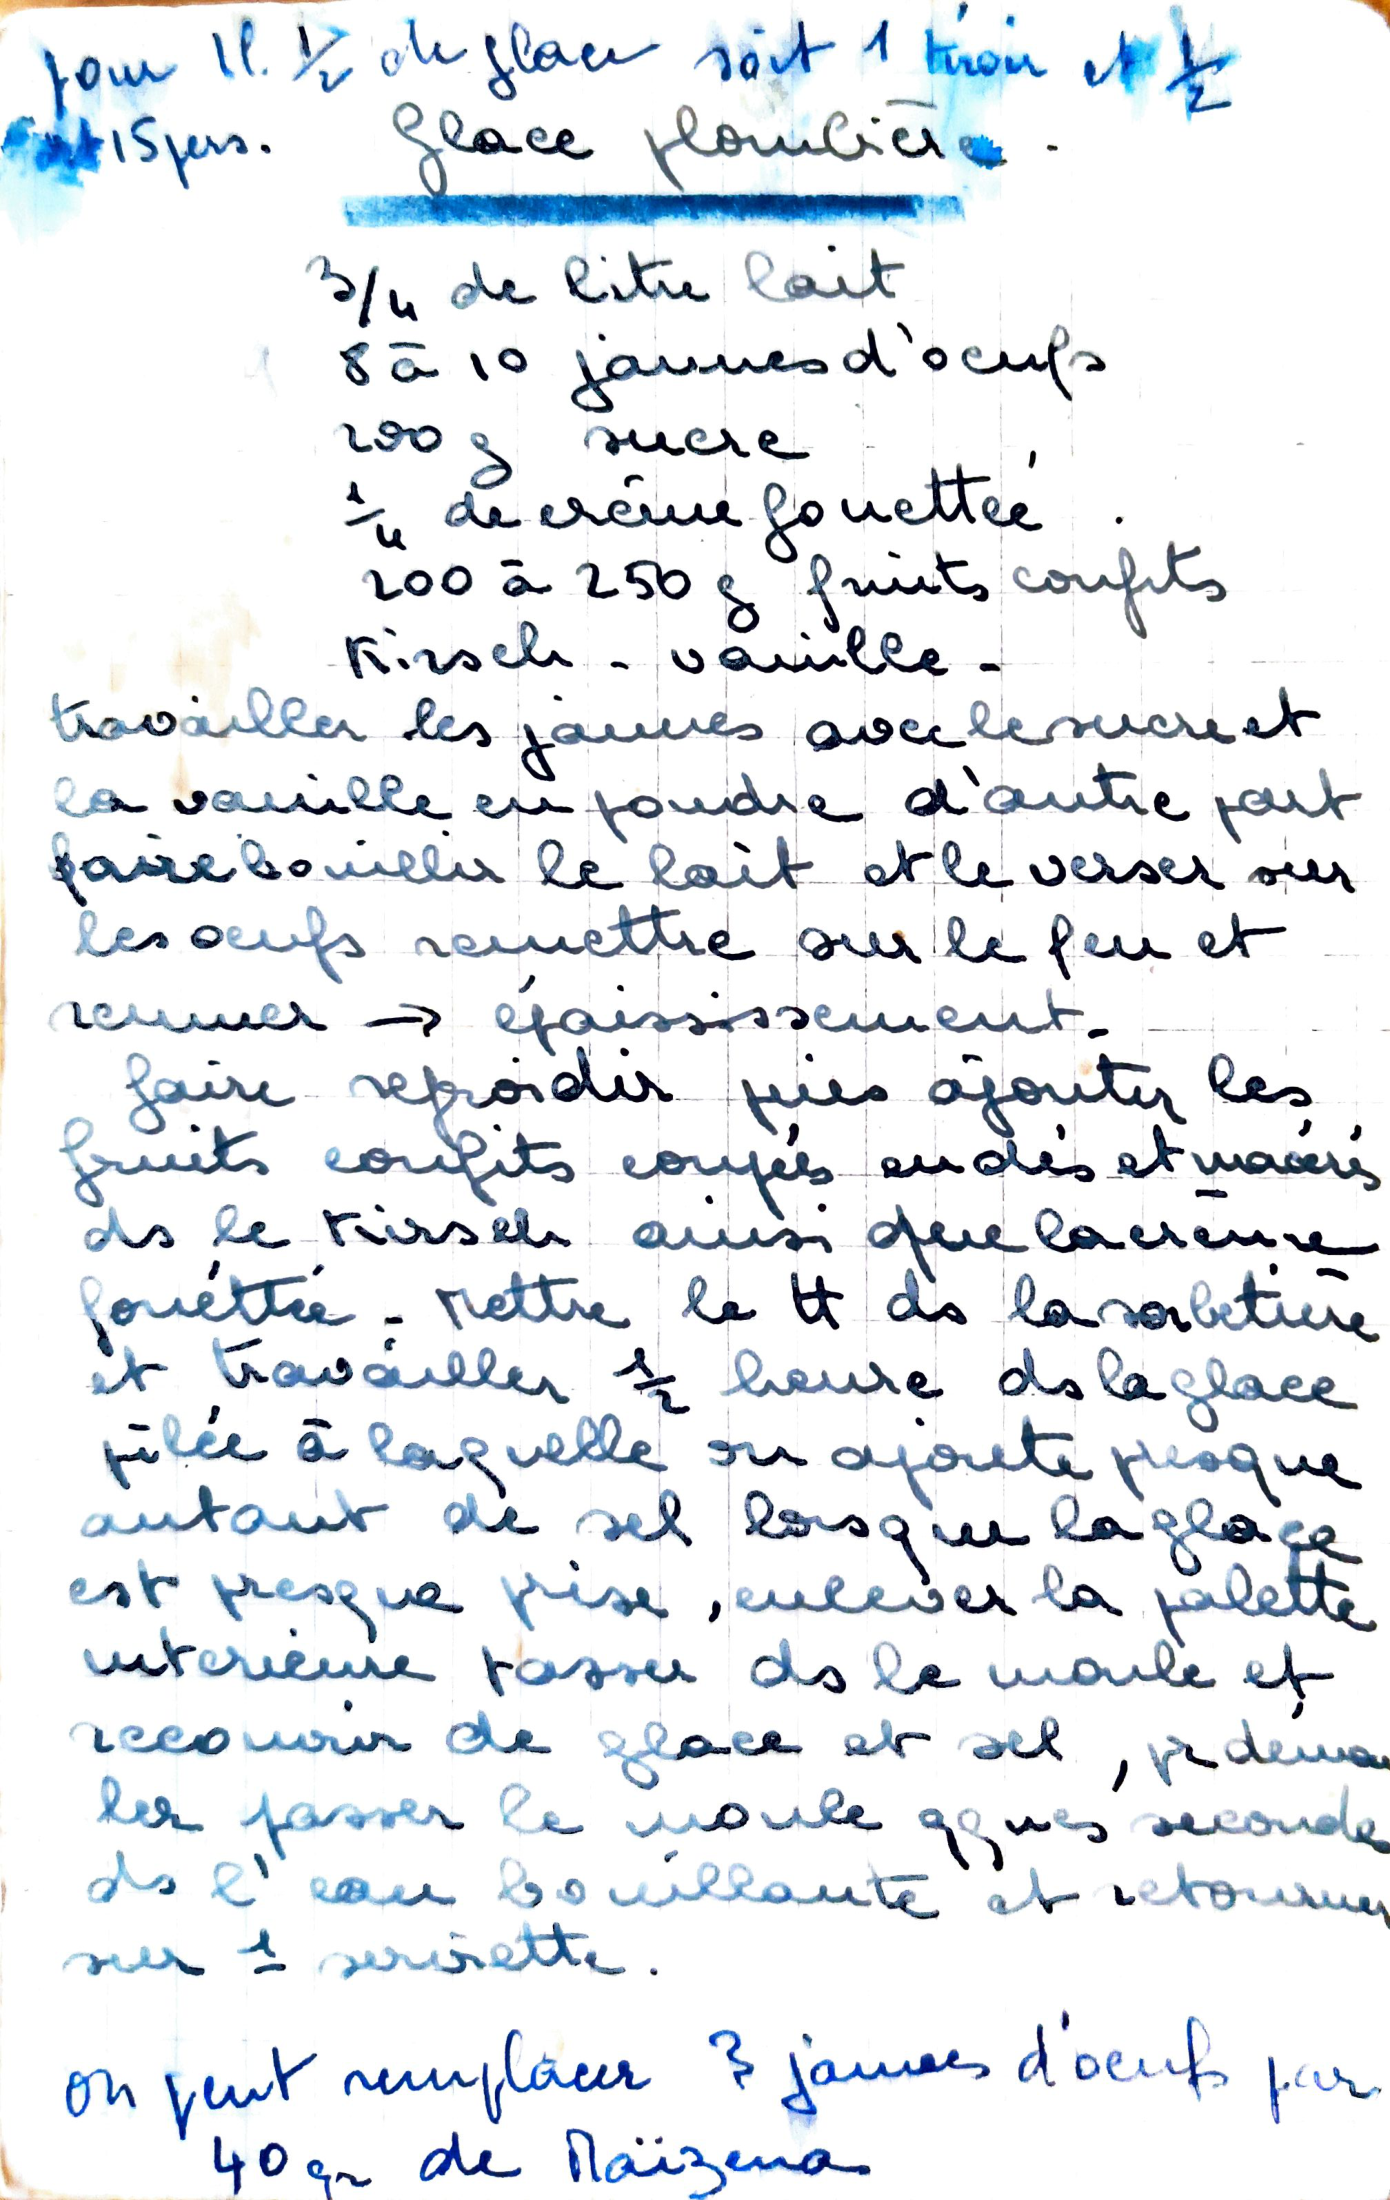 pour 1l. 1/2 de glace soit 1 tiroir et 1/2
15 pers. Glace plombière.
3/4 de litre lait
8 à 10 jaunes d'oeufs
200 g sucre
1/4 de crème fouettée.
200 à 250 g fruits confits
Kirsch - vanille -
travailler les jaunes avec le sucre et
la vanille en poudre d'autre part
faire bouillir le lait et le verser sur
les oeufs remettre sur le feu et
remuer → épaississement.
faire refroidir puis ajouter les
fruits confits coupés en dés et macérés
ds le Kirsch ainsi que la crème
fouéttée - Mettre le tt ds la sorbetière
et travailler 1/2 heure ds la glace
pilée à laquelle on ajoute presque
autant de sel lorsque la glace
est presque prise, enlever la palette
interieure tasser ds le moule et
recouvrir de glace et sel, pr démou
ler passer le moule qques secondes
ds l'eau bouillante et retourner
sur 1 serviette.
on peut remplacer 3 jaunes d'oeufs par
40 gr de Maïzena